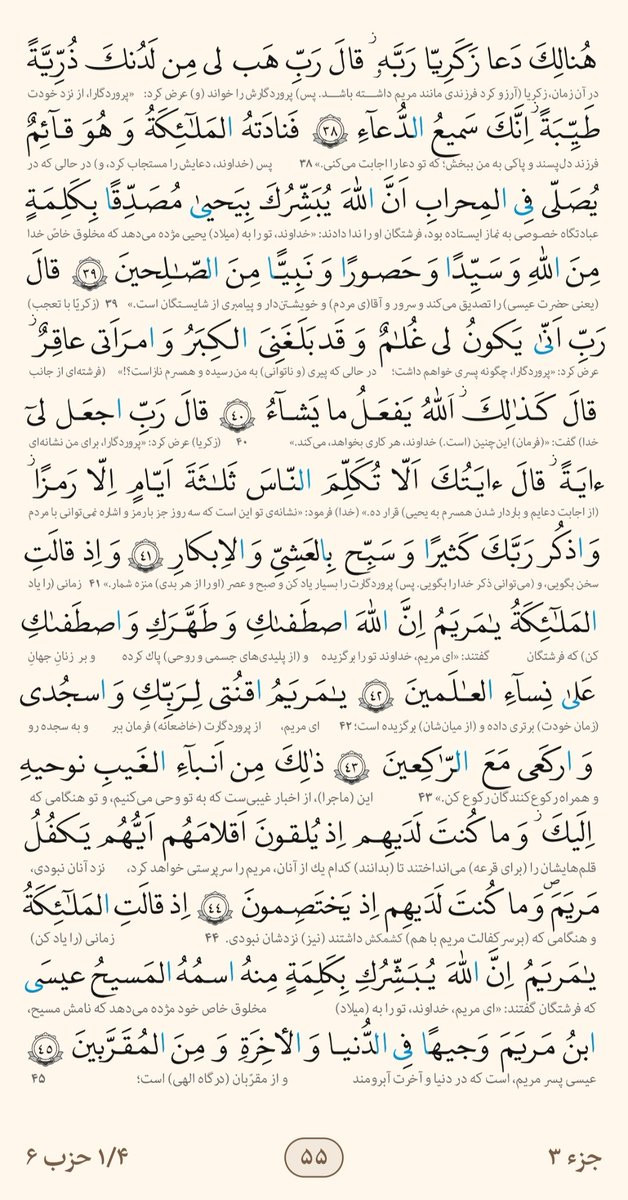 هُنالِكَ دَعا زَكَرِيّا رَبَّهٗ ۖ قالَ رَبِّ هَب لی مِن لَدُنكَ ذُرِّيَّةً
در آن زمان، زکریا (آرزو کرد فرزندی مانند مریم داشـــته باشـــد. پس) پروردگارش را خواند (و) عرض کرد: «پروردگارا، از نزد خودت
طَيِّبَةً ۖ اِنَّكَ سَميعُ الدُّعآءِ ﴿٣٨﴾ فَنادَتهُ المَلـٰٓئِكَةُ وَ هُوَ قآئِمٌ
فرزند دل‌پسند و پاکی به من ببخش؛ که تو دعا را اجابت می‌کنی.» ۳۸ پس (خداوند، دعایش را مستجاب کرد، و) در حالی که در
يُصَلّی فِی المِحرابِ اَنَّ اللّٰهَ يُبَشِّرُكَ بِيَحيیٰ مُصَدِّقًا بِكَلِمَةٍ
عبادتگاه خصوصی به نماز ایستاده بود، فرشتگان او را ندا دادند: «خداوند، تو را به (میلاد) یحیی مژده می‌دهد که مخلوق خاصّ خدا
مِنَ اللّٰهِ وَ سَيِّدًا وَ حَصورًا وَ نَبِيًّا مِنَ الصّـٰلِحينَ ﴿٣٩﴾ قالَ
(یعنی حضرت عیسی) را تصدیق می‌کند و سرور و آقا(ی مردم) و خویشتن‌دار و پیامبری از شایستگان است.» ۳۹ (زکریّا با تعجب)
رَبِّ اَنّیٰ يَكونُ لی غُلـٰمٌ وَ قَد بَلَغَنِیَ الكِبَرُ وَ امرَاَتی عاقِرٌ ۖ
عرض کرد: «پروردگارا، چگونه پسری خواهم داشت؛ در حالی که پیری (و ناتوانی) به من رسیده و همسرم نازاست؟!» (فرشته‌ای از جانب
قالَ كَذٰلِكَ ۖ اَللّٰهُ يَفعَلُ ما يَشآءُ ﴿٤٠﴾ قالَ رَبِّ اجعَل لیٓ
خدا) گفت: «(فرمان) این‌چنین (است.) خداوند، هر کاری بخواهد، می‌کند.» ۴۰ (زکریا) عرض کرد: «پروردگارا، برای من نشانه‌ای
ءايَةً ۖ قالَ ءايَتُكَ اَلّا تُكَلِّمَ النّاسَ ثَلـٰثَةَ اَيّامٍ اِلّا رَمزًا ۖ
(از اجابت دعایم و باردار شدن همسرم به یحیی) قرار ده.» (خدا) فرمود: «نشانه‌ی تو این است که سه روز جز با رمز و اشاره نمی‌توانی با مردم
وَ اذكُر رَبَّكَ كَثيرًا وَ سَبِّح بِالعَشِیِّ وَ الاِبكارِ ﴿٤١﴾ وَ اِذ قالَتِ
سخن بگویی، و (می‌توانی ذکر خدا را بگویی. پس) پروردگارت را بسیار یاد کن و صبح و عصر (او را از هر بدی) منزه شمار.» ۴۱ زمانی (را یاد
المَلـٰٓئِكَةُ يـٰمَريَمُ اِنَّ اللّٰهَ اصطَفىٰكِ وَ طَهَّرَكِ وَ اصطَفىٰكِ
کن) که فرشتگان گفتند: «ای مریم، خداوند تو را برگزیده و (از پلیدی‌های جسمی و روحی) پاك کرده و بر زنانِ جهانِ
عَلیٰ نِسآءِ العـٰلَمينَ ﴿٤٢﴾ يـٰمَريَمُ اقنُتی لِرَبِّكِ وَ اسجُدی
(زمان خودت) برتری داده و (از میان‌شان) برگزیده است؛ ۴۲ ای مریم، از پروردگارت (خاضعانه) فرمان ببر و به سجده رو
وَ اركَعی مَعَ الرّاكِعينَ ﴿٤٣﴾ ذٰلِكَ مِن اَنبآءِ الغَيبِ نوحيهِ
و همراه رکوع‌کنندگان رکوع کن.» ۴۳ این (ماجرا)، از اخبار غیبی‌ست که به تو وحی می‌کنیم، و تو هنگامی که
اِلَيكَ ۖ وَ ما كُنتَ لَدَيهِم اِذ يُلقونَ اَقلامَهُم اَيُّهُم يَكفُلُ
قلم‌هایشان را (برای قرعه) می‌انداختند تا (بدانند) کدام یك از آنان، مریم را سرپرستی خواهد کرد، نزد آنان نبودی،
مَريَمَ ۖ وَ ما كُنتَ لَدَيهِم اِذ يَختَصِمونَ ﴿٤٤﴾ اِذ قالَتِ المَلـٰٓئِكَةُ
و هنگامی که (بر سر کفالت مریم با هم) کشمکش داشتند (نیز) نزدشان نبودی. ۴۴ زمانی (را یاد کن)
يـٰمَريَمُ اِنَّ اللّٰهَ يُبَشِّرُكِ بِكَلِمَةٍ مِنهُ اسمُهُ المَسيحُ عيسَی
که فرشتگان گفتند: «ای مریم، خداوند، تو را به (میلاد) مخلوق خاص خود مژده می‌دهد که نامش مسیح،
ابنُ مَريَمَ وَجيهًا فِی الدُّنيا وَ الأخِرَةِ وَ مِنَ المُقَرَّبينَ ﴿٤٥﴾
عیسی پسر مریم، است که در دنیا و آخرت آبرومند و از مقرّبان (درگاه الهی) است؛ ۴۵
جزء ۳ ۵۵ ۱/۴ حزب ۶